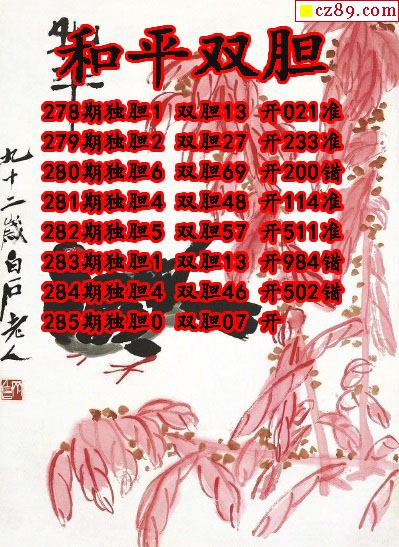 cz89.com
和平双胆
278期独胆1 双胆13 开021准
279期独胆2 双胆27 开233准
280期独胆6 双胆69 开200错
281期独胆4 双胆48 开114准
282期独胆5 双胆57 开511准
283期独胆1 双胆13 开984错
284期独胆4 双胆46 开502错
285期独胆0 双胆07 开
九十二岁白石老人